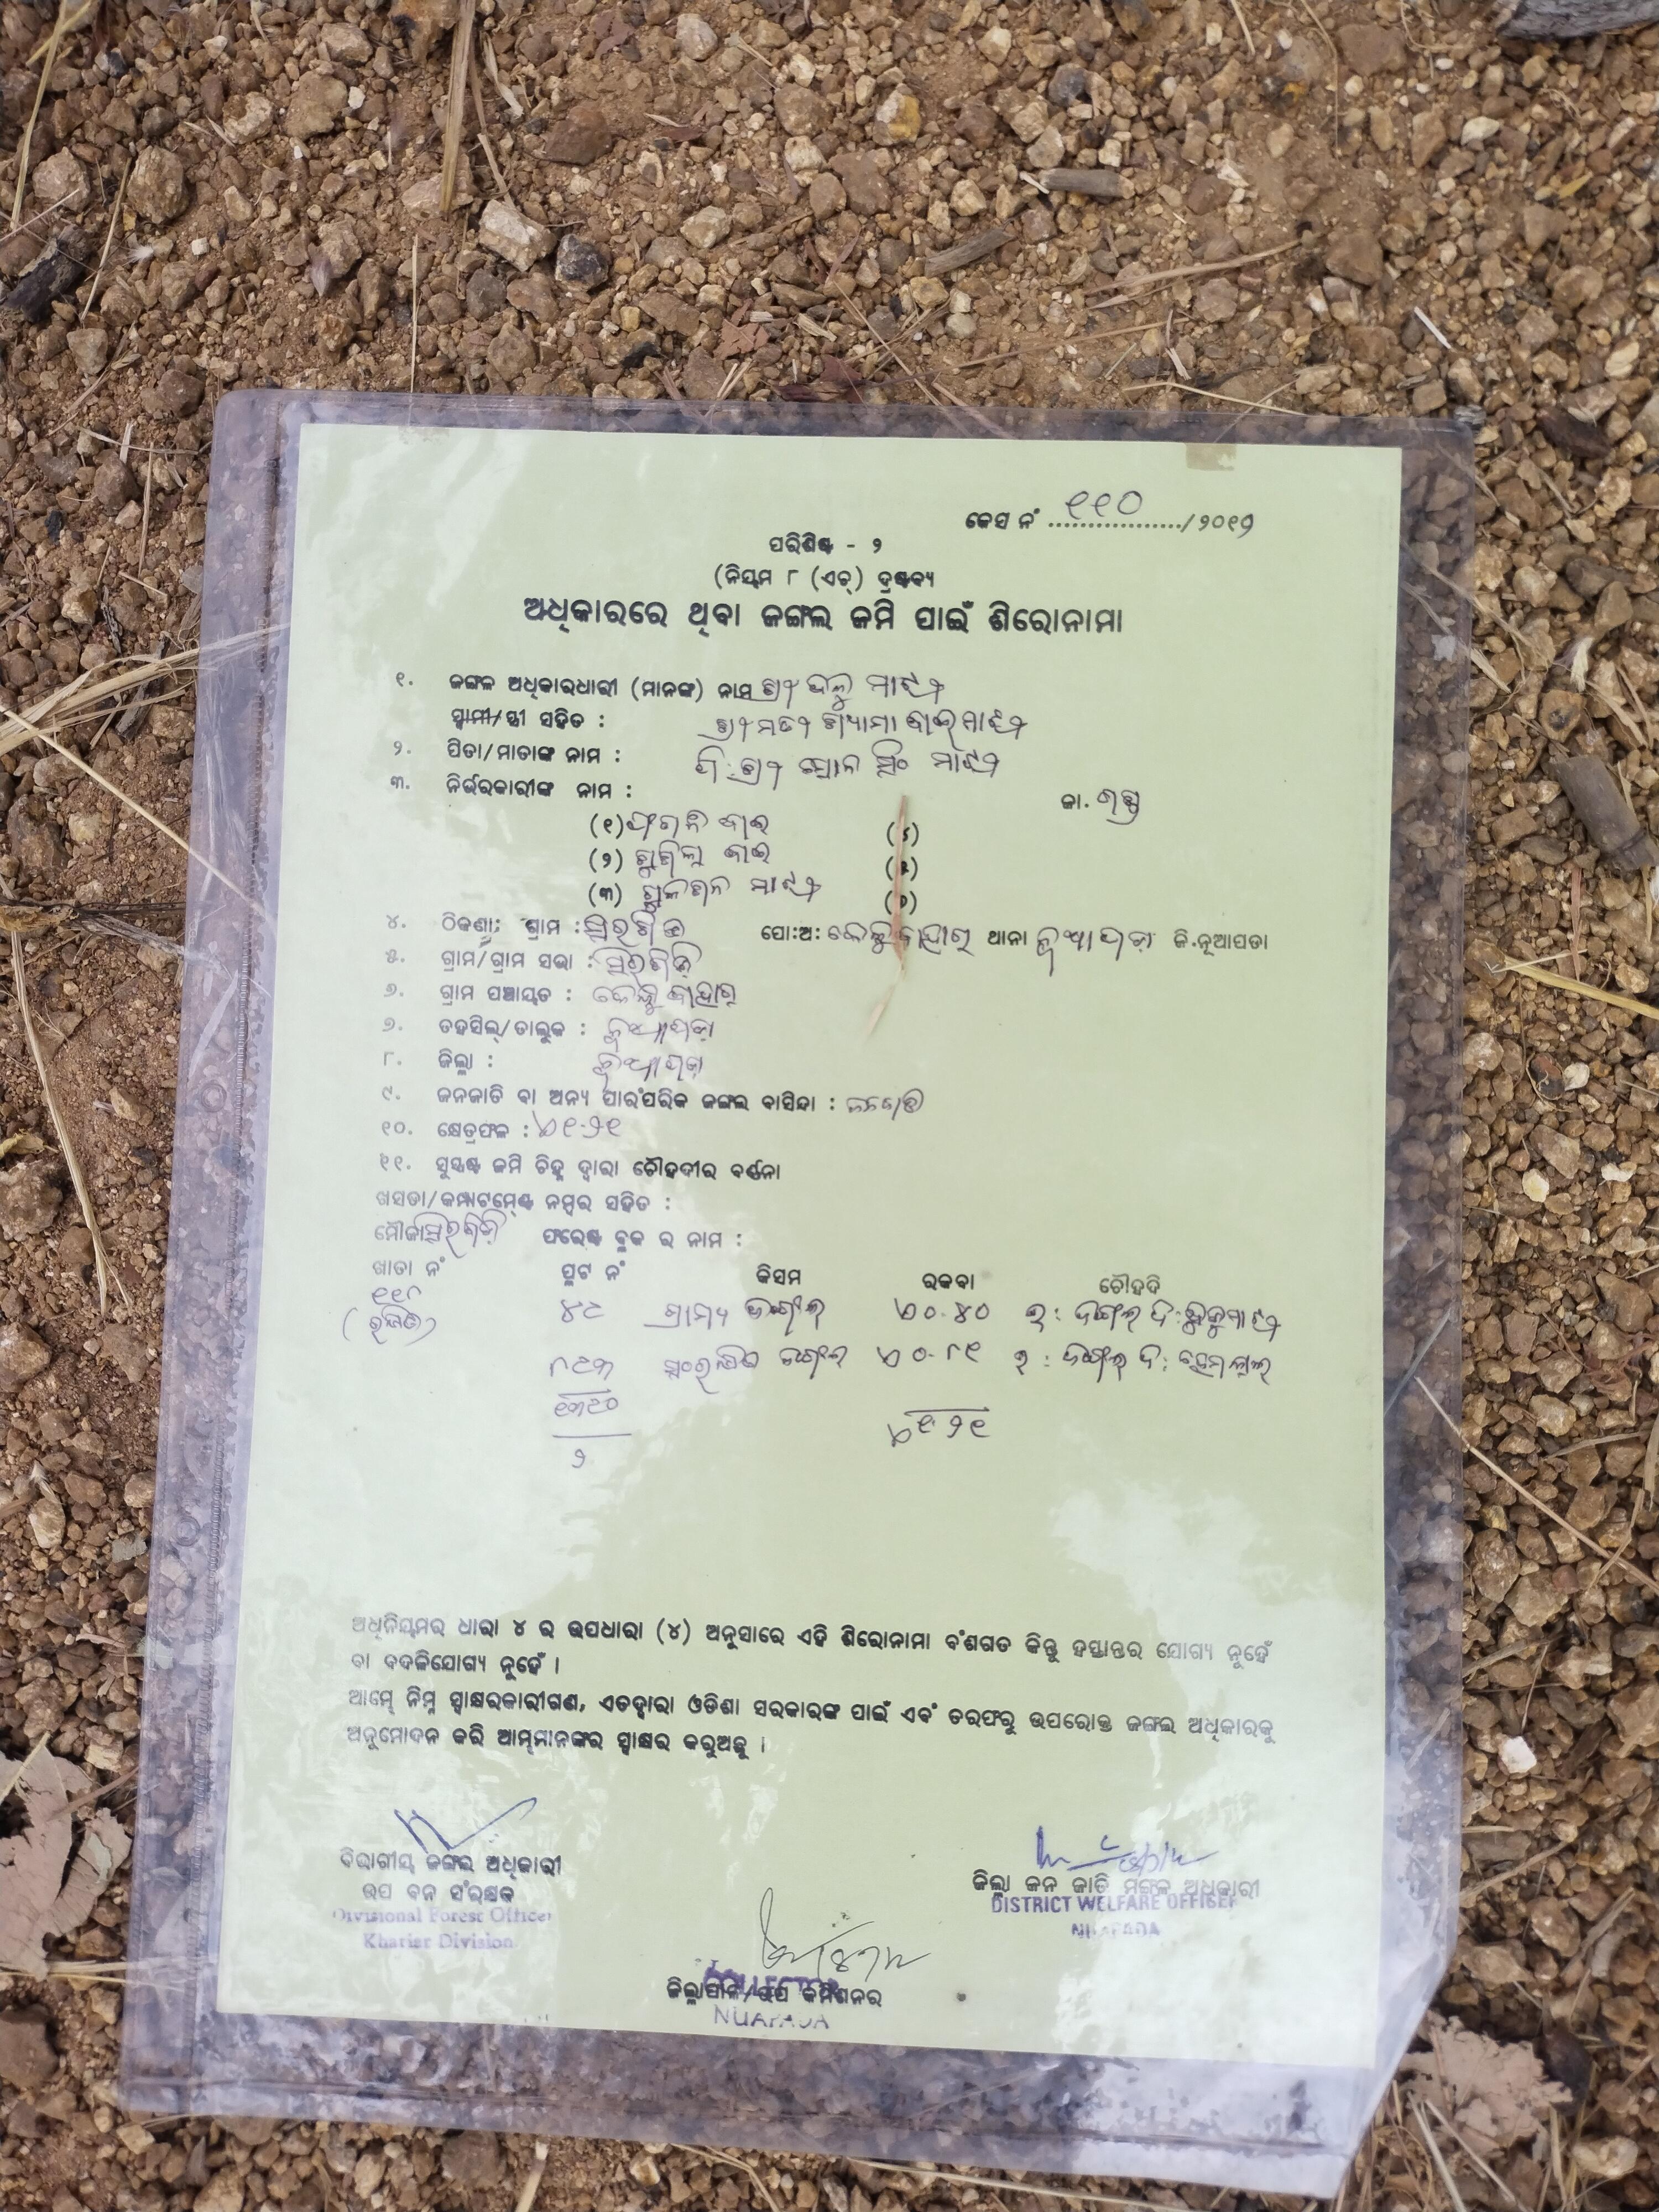 କେସ ନଂ ୧୧୦/୨୦୧୭
ପରିଶିଷ୍ଟ - ୨
(ନିୟମ ୮ (ଏଚ୍) ଦ୍ରଷ୍ଟବ୍ୟ
ଅଧିକାରରେ ଥିବା ଜଙ୍ଗଲ ଜମି ପାଇଁ ଶିରୋନାମା
୧. ଜଙ୍ଗଳ ଅଧିକାରଧାରୀ (ମାନଙ୍କ) ନାମ ଶ୍ରୀ ଦଳୁ ମାଝୀ
ସ୍ୱାମୀ/ସ୍ତ୍ରୀ ସହିତ : ଶ୍ରୀମତୀ ଶ୍ୟାମା ବାଇ ମାଝୀ
୨. ପିତା/ମାତାଙ୍କ ନାମ : ପି:ଶ୍ରୀ ସିଂ ମାଝୀ
୩. ନିର୍ଭରକାରୀଙ୍କ ନାମ : ଜା.
(୧) ବାଇ (୪)
(୨) ବାଇ (୫)
(୩) ମାଝୀ (୬)
୪. ଠିକଣା: ଗ୍ରାମ : ପୋ:ଅ: ଥାନା ନୂଆପଡ଼ା ଜି.ନୂଆପଡା
୫. ଗ୍ରାମ/ଗ୍ରାମ ସଭା :
୬. ଗ୍ରାମ ପଞ୍ଚାୟତ :
୭. ତହସିଲ୍/ତାଲୁକ : ନୂଆପଡ଼ା
୮. ଜିଲ୍ଲା : ନୂଆପଡ଼ା
୯. ଜନଜାତି ବା ଅନ୍ୟ ପାରଂପରିକ ଜଙ୍ଗଲ ବାସିନ୍ଦା : ଜନଜାତି
୧୦. କ୍ଷେତ୍ରଫଳ : ୧.୨୧
୧୧. ସୁସ୍ପଷ୍ଟ ଜମି ଚିହ୍ନ ଦ୍ୱାରା ଚୌହଦୀର ବର୍ଣ୍ଣନା
ଖସଡା/କମ୍ପାଟମେଣ୍ଟ ନମ୍ବର ସହିତ :
ମୌଜା ଫରେଷ୍ଟ ବ୍ଲକ ର ନାମ :
ଖାତା ନଂ ପ୍ଲଟ ନଂ କିସମ ରକବା ଚୌହଦି
୧୧୮ ୪୯ ଗ୍ରାମ୍ୟ ଜଙ୍ଗଲ ୦.୪୦ ଉ: ଜଙ୍ଗଲ ଦ:
(ରକ୍ଷିତ) ୮୯୩ ସଂରକ୍ଷିତ ଜଙ୍ଗଲ ୦.୮୧ ଉ: ଜଙ୍ଗଲ ଦ:
୧୩୯୦
୨ ୧.୨୧
ଅଧିନିୟମର ଧାରା ୪ ର ଉପଧାରା (୪) ଅନୁସାରେ ଏହି ଶିରୋନାମା ବଂଶଗତ କିନ୍ତୁ ହସ୍ତାନ୍ତର ଯୋଗ୍ୟ ନୁହେଁ
ବା ବଦଳିଯୋଗ୍ୟ ନୁହେଁ ।
ଆମ୍ଭେ ନିମ୍ନ ସ୍ୱାକ୍ଷରକାରୀଗଣ, ଏତଦ୍ୱାରା ଓଡିଶା ସରକାରଙ୍କ ପାଇଁ ଏବଂ ତରଫରୁ ଉପରୋକ୍ତ ଜଙ୍ଗଲ ଅଧିକାରକୁ
ଅନୁମୋଦନ କରି ଆମ୍ଭମାନଙ୍କର ସ୍ୱାକ୍ଷର କରୁଅଛୁ ।
ବିଭାଗୀୟ ଜଙ୍ଗଲ ଅଧିକାରୀ
ଉପ ବନ ସଂରକ୍ଷକ
Divisional Forest Officer
Khariar Division
ଜିଲ୍ଲା ଜନ ଜାତି ମଙ୍ଗଳ ଅଧିକାରୀ
DISTRICT WELFARE OFFICER
NUAPADA
COLLECTOR
ଜିଲ୍ଲାପାଳ/ଉପ କମିଶନର
NUAPADA